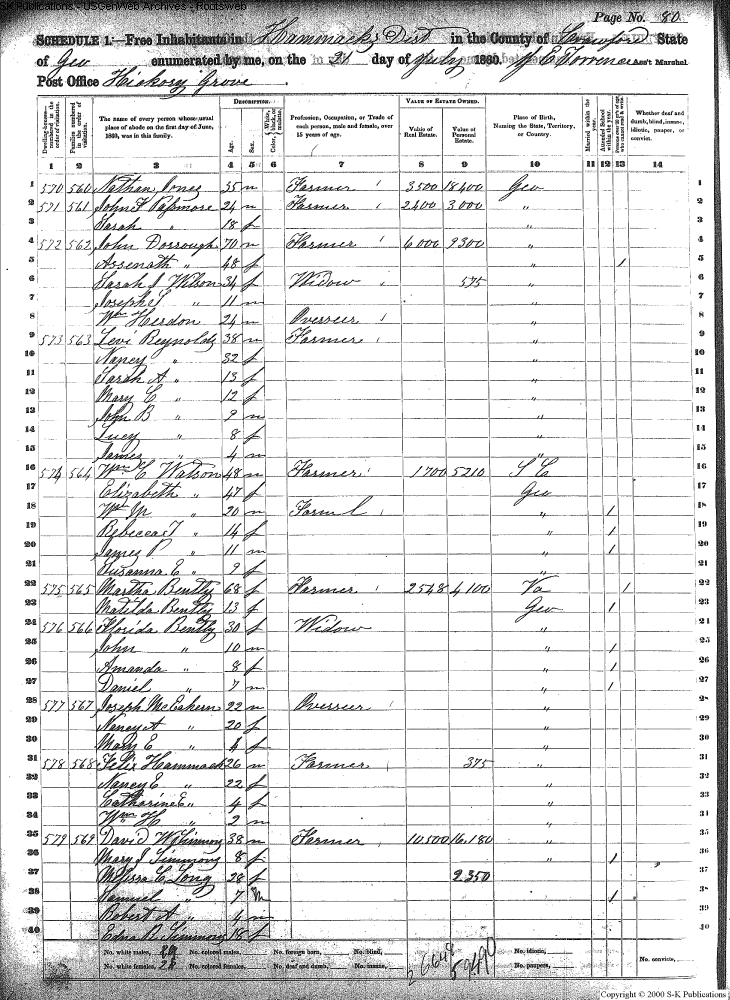 SK Publications - USGenWeb Archives - Rootsweb
Page No. 80
SCHEDULE 1.—Free Inhabitants in Hammacks Dist in the County of Crawford State
of Geo enumerated by me, on the 21 day of July 1860. J E Torrence Ass't Marshal
Post Office Hickory Grove
Dwelling-houses—numbered in the order of visitation. Families numbered in the order of visitation. The name of every person whose usual place of abode on the first day of June, 1860, was in this family. DESCRIPTION. Age. Sex. Color, White, black, or mulatto. Profession, Occupation, or Trade of each person, male and female, over 15 years of age. VALUE OF ESTATE OWNED. Value of Real Estate. Value of Personal Estate. Place of Birth, Naming the State, Territory, or Country. Married within the year. Attended School within the year. Persons over 20 y'rs of age who cannot read & write. Whether deaf and dumb, blind, insane, idiotic, pauper, or convict.
1 2 3 4 5 6 7 8 9 10 11 12 13 14
1 570 560 Nathan Jones 35 m Farmer 3500 18400 Geo 1
2 571 561 John F Passmore 24 m Farmer 2400 3000 " 2
3 Sarah " 18 f " 3
4 572 562 John Dorrough 70 m Farmer 6000 9300 " 4
5 Assenath " 48 f " / 5
6 Sarah J Wilson 34 f Widow 575 " 6
7 Joseph S " 11 m " 7
8 Wm Herdon 24 m Overseer " 8
9 573 563 Levi Reynolds 38 m Farmer " 9
10 Nancy " 32 f " 10
11 Sarah A " 13 f " 11
12 Mary E " 12 f " 12
13 John B " 9 m " 13
14 Lucy " 8 f " 14
15 James " 4 m " 15
16 574 564 Wm C Watson 48 m Farmer 1700 5210 S C 16
17 Elizabeth " 47 f Geo 17
18 Wm M " 20 m Farm L " / 18
19 Rebecca T " 14 f " / 19
20 James P " 11 m " / 20
21 Susanna E " 9 f " 21
22 575 565 Martha Bently 68 f Farmer 2548 4100 Va / 22
23 Matilda Bently 13 f Geo / 23
24 576 566 Florida Bently 30 f Widow " 24
25 John " 10 m " / 25
26 Amanda " 8 f " / 26
27 Daniel " 7 m " / 27
28 577 567 Joseph McEahern 22 m Overseer " 28
29 Nancy A " 20 f " 29
30 Mary E " f " 30
31 578 568 Felix Hammack 26 m Farmer 375 " 31
32 Nancy E " 22 f " 32
33 Catharine E " 4 f " 33
34 Wm H " 2 m " 34
35 579 569 David W Simmons 38 m Farmer 10500 16,180 " 35
36 Mary J Simmons 8 f " / 36
37 Melissa C Long 28 f 2350 " 37
38 Samuel " 7 m " / 38
39 Robert A " 4 m " 39
40 Edna B Simmons 18 f " 40
No. white males, No. colored males, No. foreign born, No. blind, No. idiotic, No. convicts,
No. white females, No. colored females, No. deaf and dumb, No. insane, No. paupers,
Copyright © 2000 S-K Publications